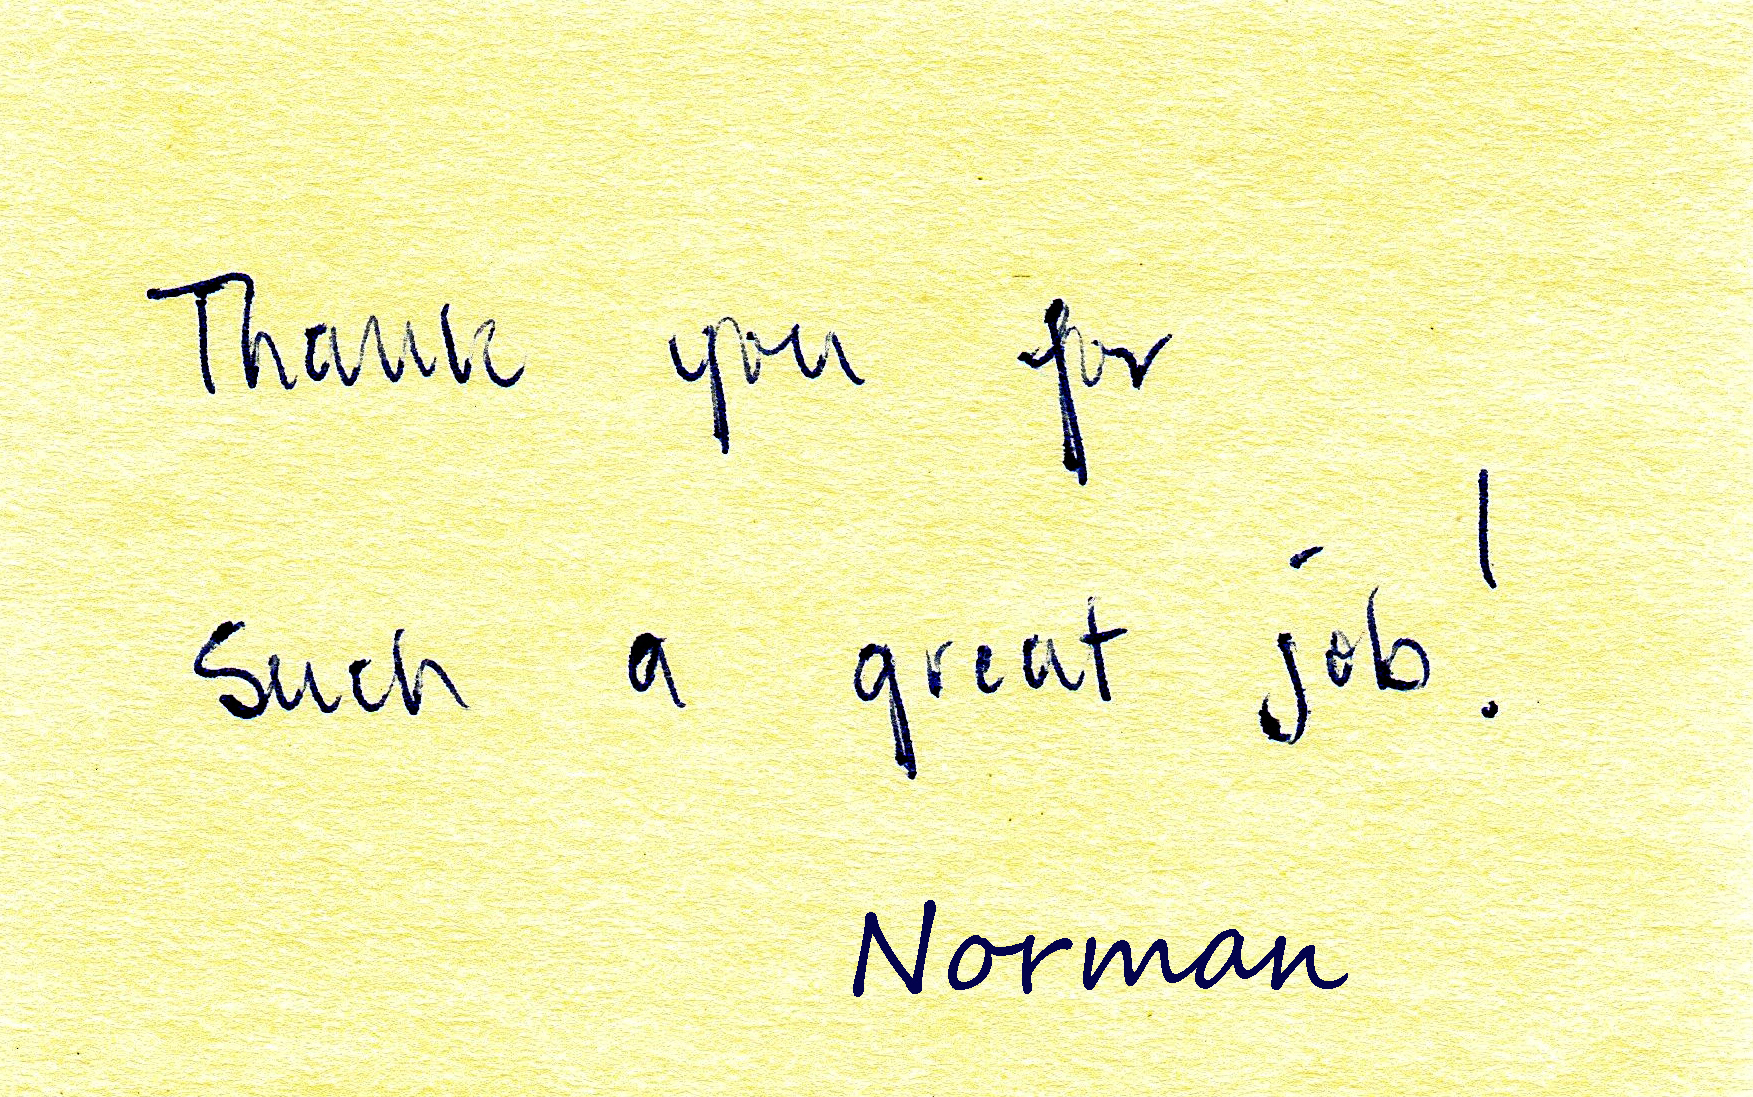 Thank you for
Such a great job!
Norman